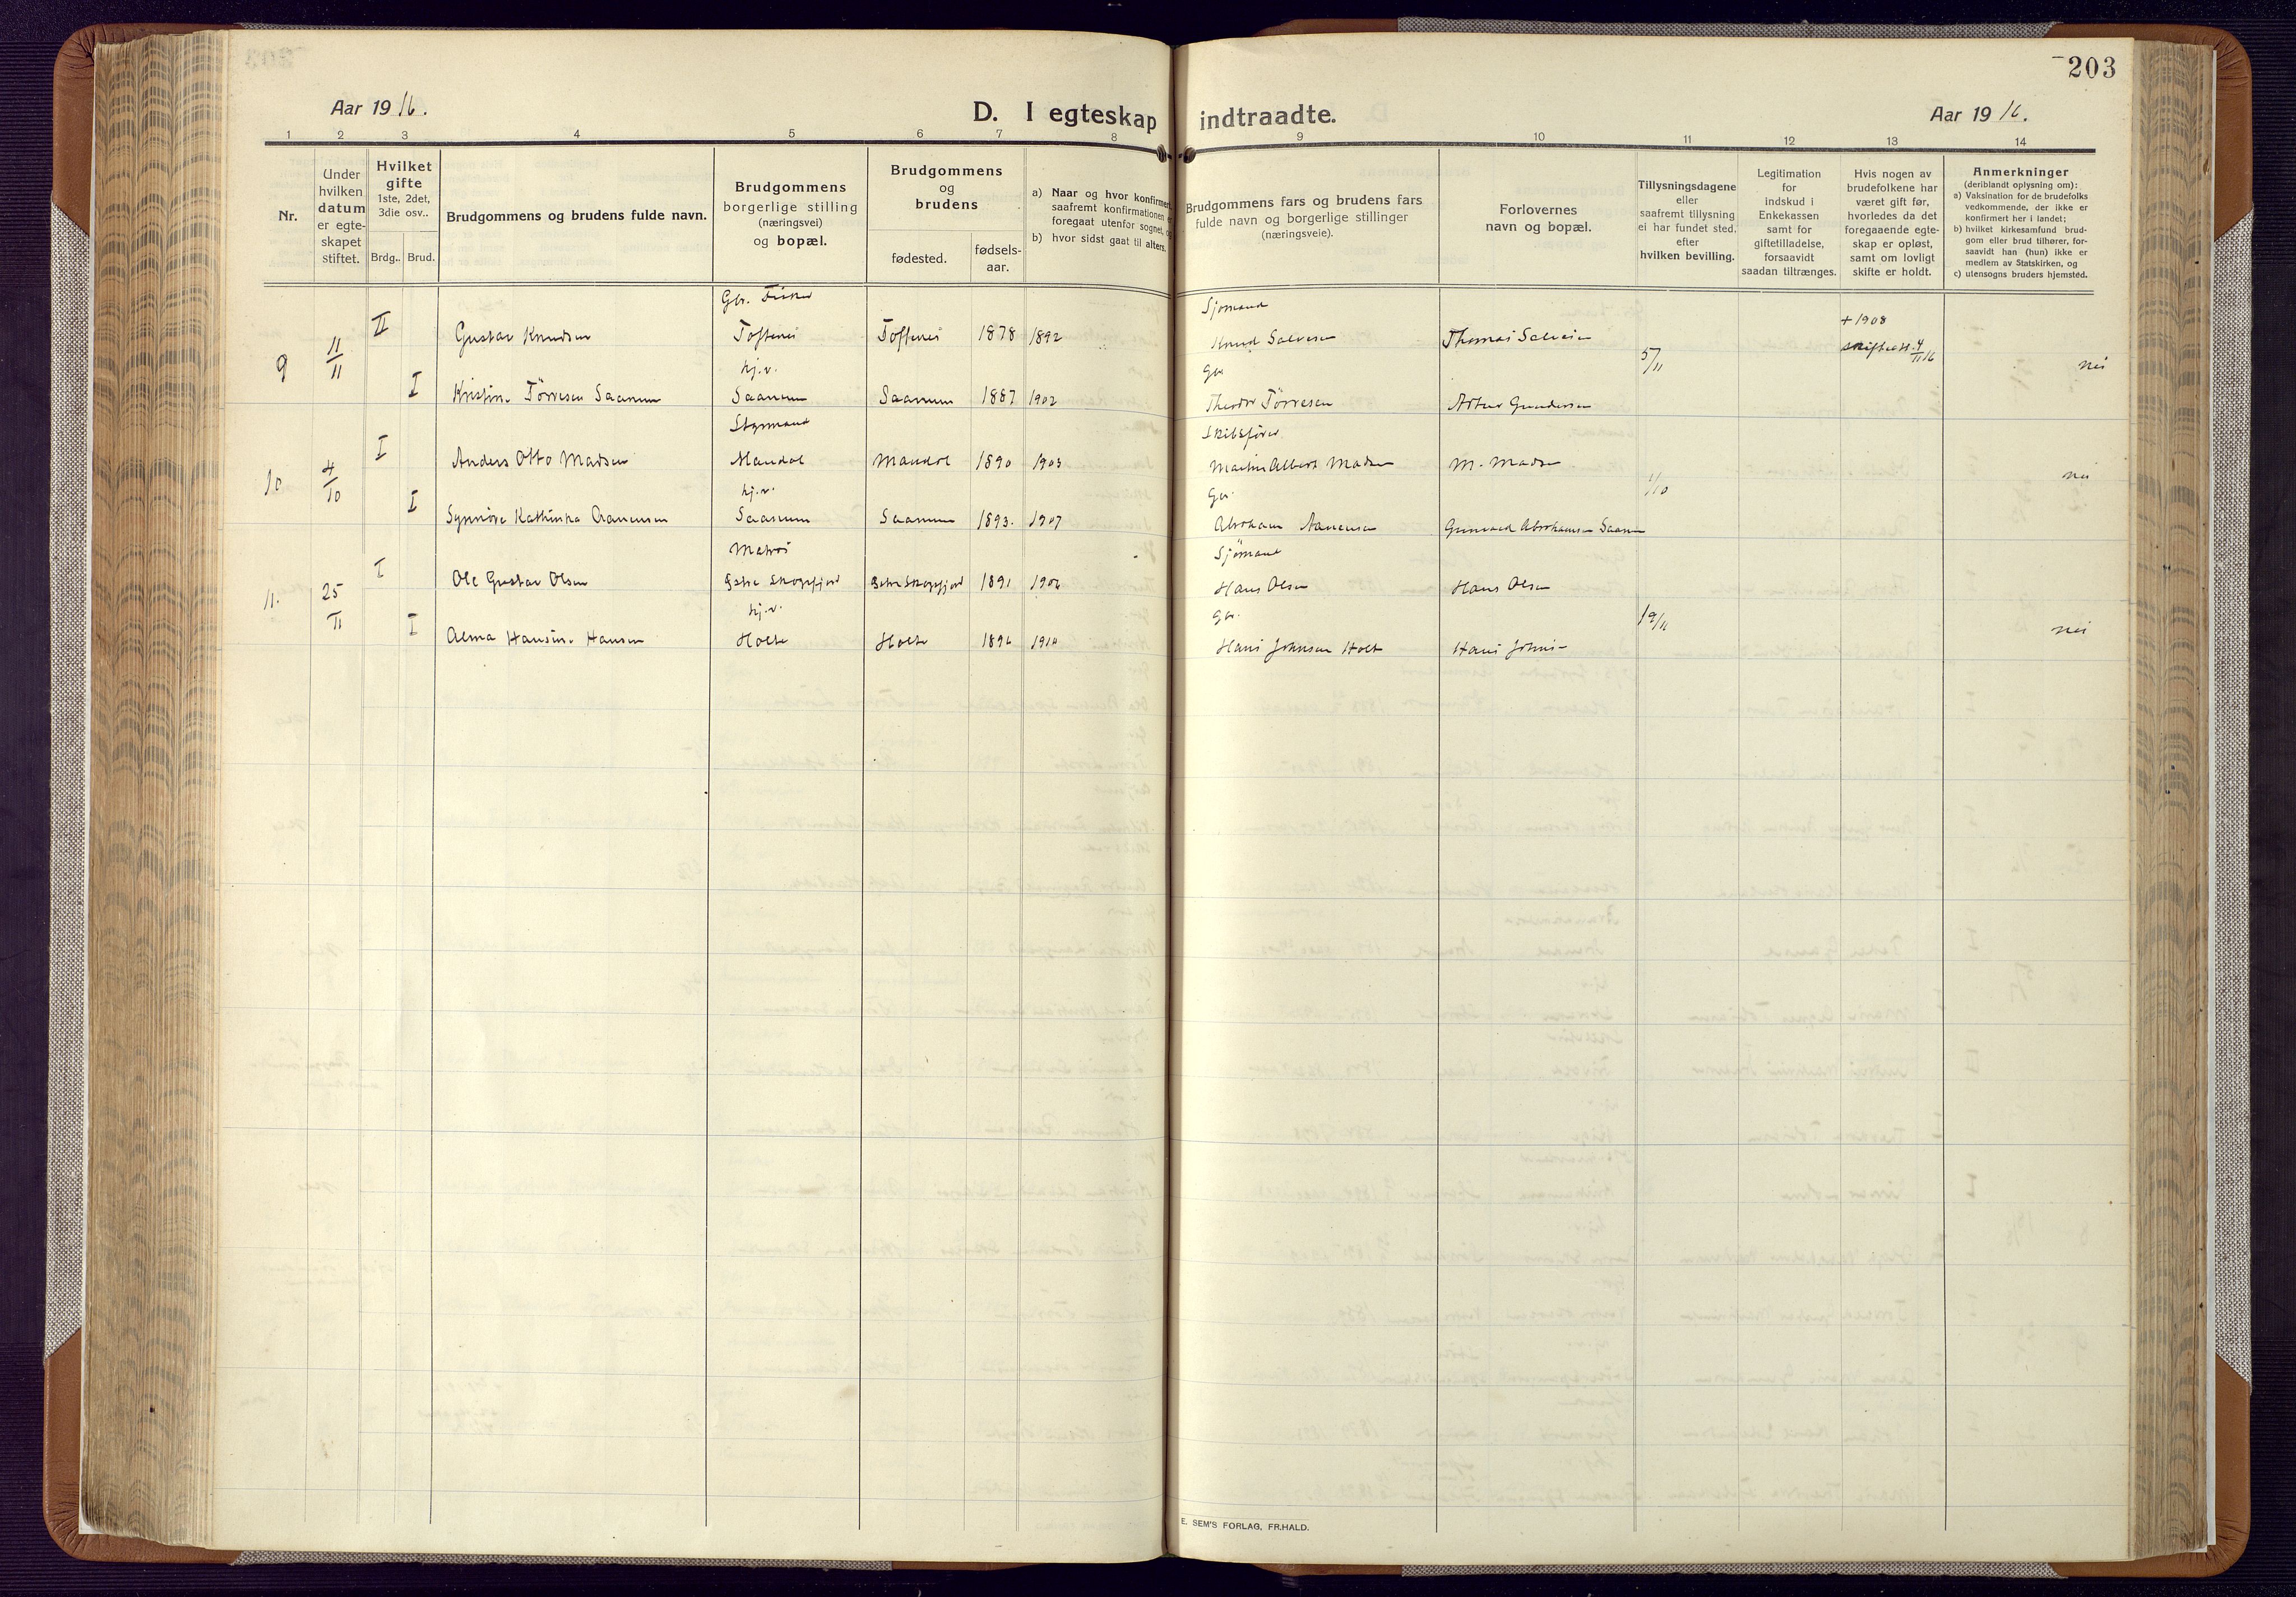 203
Aar 1916.
D. I egteskap indtraadte.
Aar 1916.
1 2 3 4 5 6 7 8 9 10 11 12 13 14
Nr.
Under
hvilken
datum
er egte-
skapet
stiftet.
Hvilket
gifte
1ste, 2det,
3die osv..
Brdg.. Brud.
Brudgommens og brudens fulde navn.
Brudgommens
borgerlige stilling
(næringsvei)
og bopæl.
Brudgommens
og
brudens
fødested.
fødsels-
aar.
a) Naar og hvor konfirmert
saafremt konfirmationen er
foregaat utenfor sognet, og
b) hvor sidst gaat til alters.
Brudgommens fars og brudens fars
fulde navn og borgerlige stillinger
(næringsveie).
Forlovernes
navn og bopæl.
Tillysningsdagene
eller
saafremt tillysning
ei har fundet sted,
efter
hvilken bevilling.
Legitimation
for
indskud i
Enkekassen
samt for
giftetilladelse,
forsaavidt
saadan tiltrænges.
Hvis nogen av
brudefolkene har
været gift før,
hvorledes da det
foregaaende egte-
skap er opløst,
samt om lovligt
skifte er holdt.
Anmerkninger
(deriblandt oplysning om):
a) Vaksination for de brudefolks
vedkommende, der ikke er
konfirmert her i landet;
b) hvilket kirkesamfund brud-
gom eller brud tilhører, for-
saavidt han (hun) ikke er
medlem av Statskirken, og
c) utensogns bruders hjemsted.
Gbr. Fisker Sjømand
9 11/11 II Gustav Knudsen Toftenes Toftenes 1878 1892 Knud Salvesen Thomas Salvesen + 1908
skifteatt. 4/11 16
hj.v. Gbr. 5/11 nei
I Kristine Tørresen Saanum Saanum Saanum 1887 1902 Theodor Tørresen Artur Gundersen
Styrmand Skibsfører
10 4/10 I Anders Otto Madsen Mandal Mandal 1890 1905 Martin Albert Madsen M. Madsen
hj.v. Gbr. 1/10 nei
I Synnøve Kathinka Aanensen Saanum Saanum 1893. 1907 Abraham Aanensen Gunvald Abrahamsen Saanum
Matros Sjømand
11. 25/11 I Ole Gustav Olsen Ytre Skogsfjord Ytre Skogsfjord 1891 1906 Hans Olsen Hans Olsen
hj.v. Gbr. 19/11 nei
I Alma Hansine Hansen Holte Holte 1896 1910 Hans Johnsen Holt Hans Johns-
E. SEM'S FORLAG, FR.HALD.